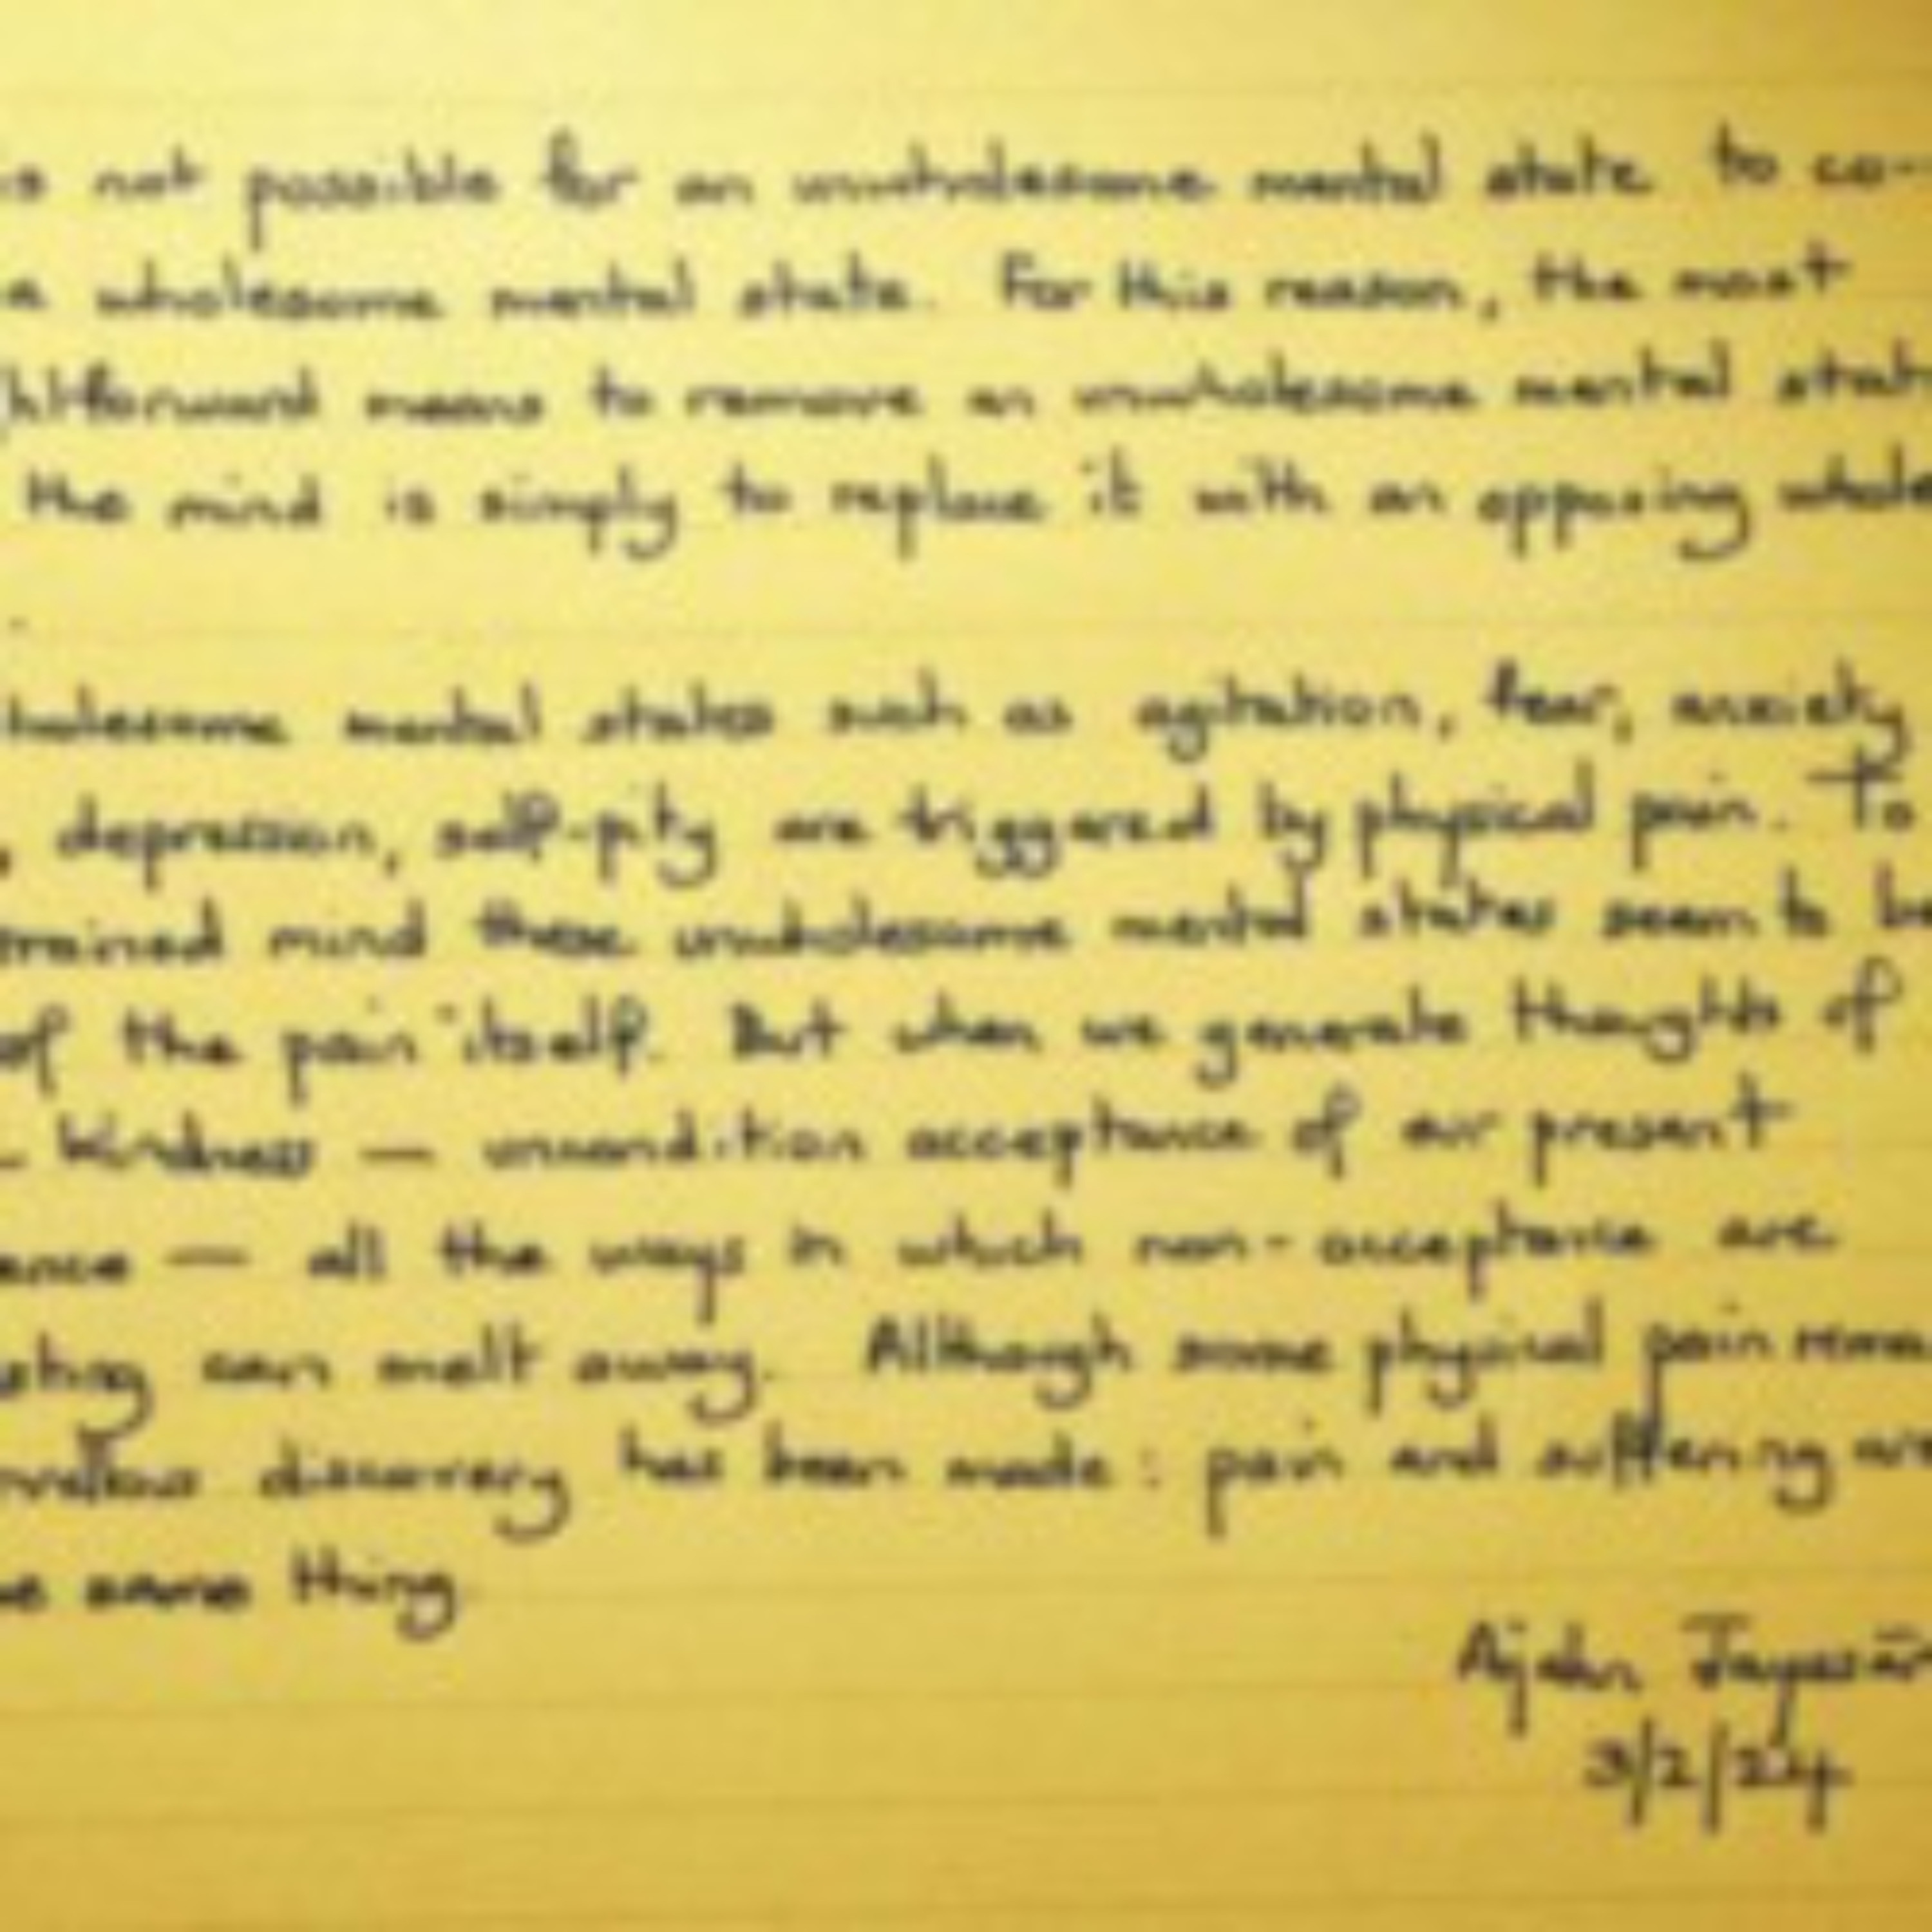 is not possible for an unwholesome mental state to co-
a wholesome mental state. For this reason, the most
ghtforward means to remove an unwholesome mental stat
the mind is simply to replace it with an opposing whole
holesome mental states such as agitation, fear, anxiety
, depression, self-pity are triggered by physical pain. To
trained mind these unwholesome mental states seem to be
of the pain itself. But when we generate thoughts of
- kindness — uncondition acceptance of our present
ence — all the ways in which non-acceptance are
sting can melt away. Although some physical pain rema
rvellous discovery has been made: pain and suffering are
he same thing.
Ajahn Jayasār
3/2/24